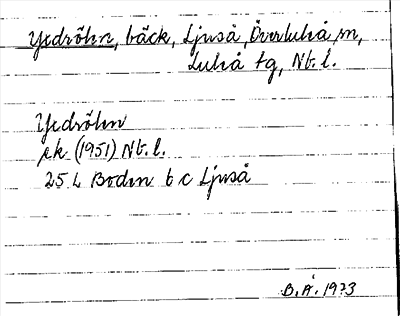 Yxdrôln, bäck, Ljuså, Överluleå sn,
Luleå tg, Nb. l.
Yxdrôln
ek (1951) Nb. l.
25 L Boden 6 c Ljuså
B. Å. 1973